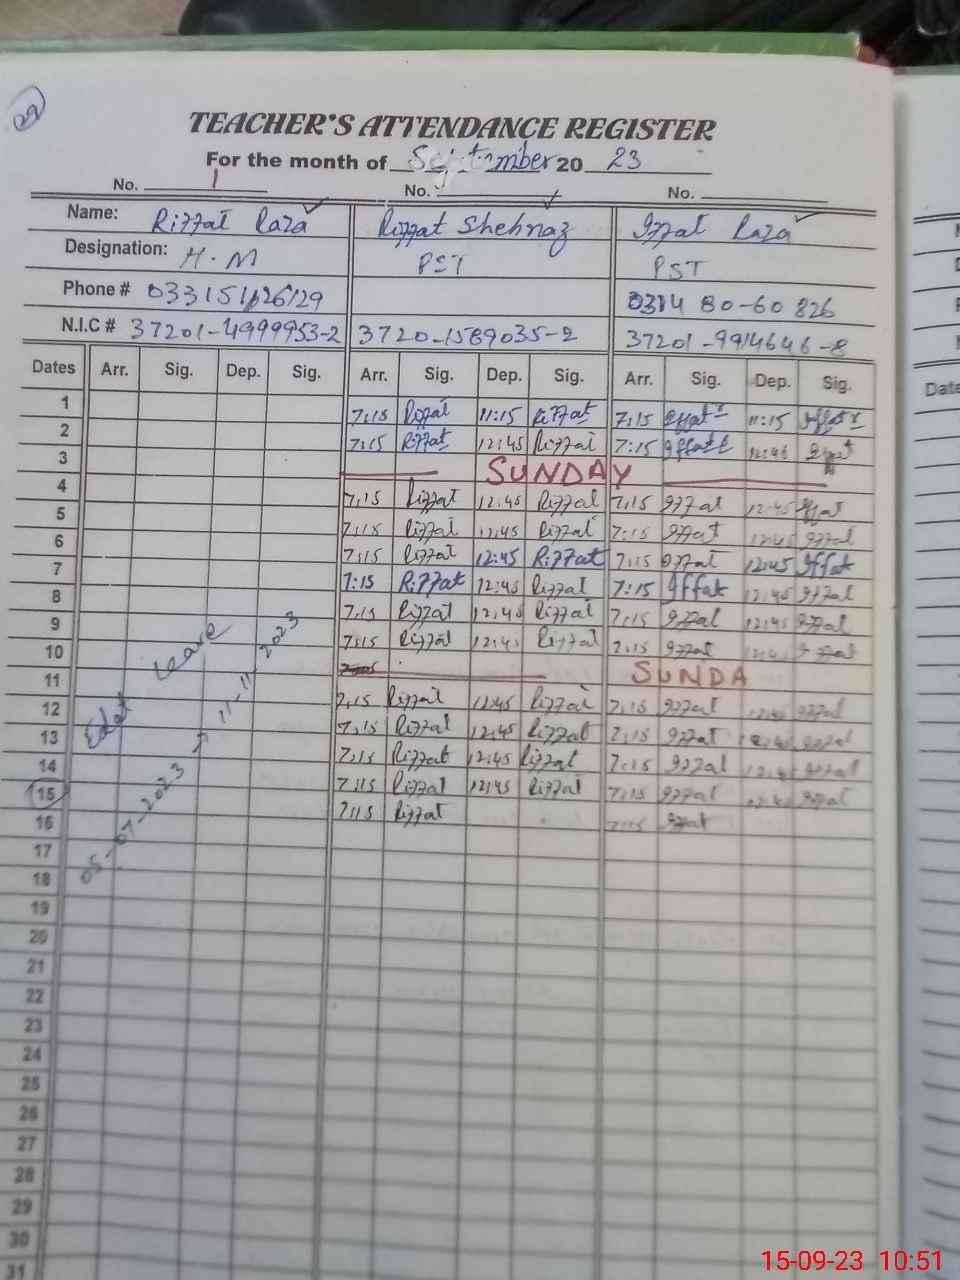 29
TEACHER'S ATTENDANCE REGISTER
For the month of September 20 23
No. 1 No. No.
Name: Riffat Raza Riffat Shehnaz Iffat Raza
Designation: H.M PST PST
Phone # 0314 80-60 826
N.I.C # 37201-4999953-2 3720-1589035-2 37201-9914646-8
Dates Arr. Sig. Dep. Sig. Arr. Sig. Dep. Sig. Arr. Sig. Dep. Sig.
1 7:15 Riffat 11:15 Riffat 7:15 Iffat 11:15 Iffat
2 7:15 Riffat 12:45 Riffat 7:15 Iffat 12:45 Iffat
3 SUNDAY
4 7:15 Riffat 12:45 Riffat 7:15 Iffat 12:45 Iffat
5 7:15 Riffat 12:45 Riffat 7:15 Iffat 12:45 Iffat
6 7:15 Riffat 12:45 Riffat 7:15 Iffat 12:45 Iffat
7 7:15 Riffat 12:45 Riffat 7:15 Iffat 12:45 Iffat
8 7:15 Riffat 12:45 Riffat 7:15 Iffat 12:45 Iffat
9 7:15 Riffat 12:45 Riffat 7:15 Iffat 12:45 Iffat
10 SUNDA
11 7:15 Riffat 12:45 Riffat 7:15 Iffat 12:45 Iffat
12 7:15 Riffat 12:45 Riffat 7:15 Iffat 12:45 Iffat
13 7:15 Riffat 12:45 Riffat 7:15 Iffat 12:45 Iffat
14 7:15 Riffat 12:45 Riffat 7:15 Iffat 12:45 Iffat
15 7:15 Riffat 7:15 Iffat
16
17
18
19
20
21
22
23
24
25
26
27
28
29
30
31
Leave
05-07-2023 11-11-2023
Date
15-09-23 10:51